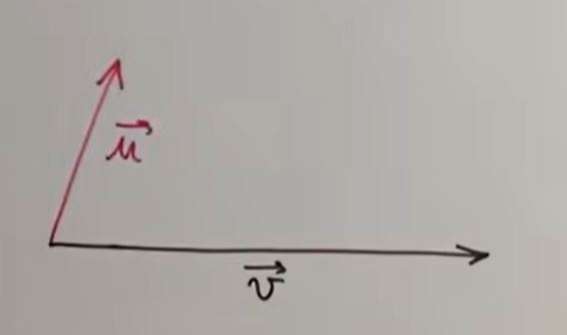 $\vec{u}$
$\vec{v}$